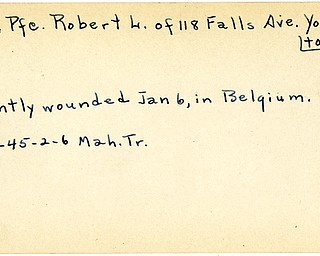 , Pfc. Robert L. of 118 Falls Ave. Yo
to
ntly wounded Jan 6, in Belgium.
-45-2-6 Mah. Tr.